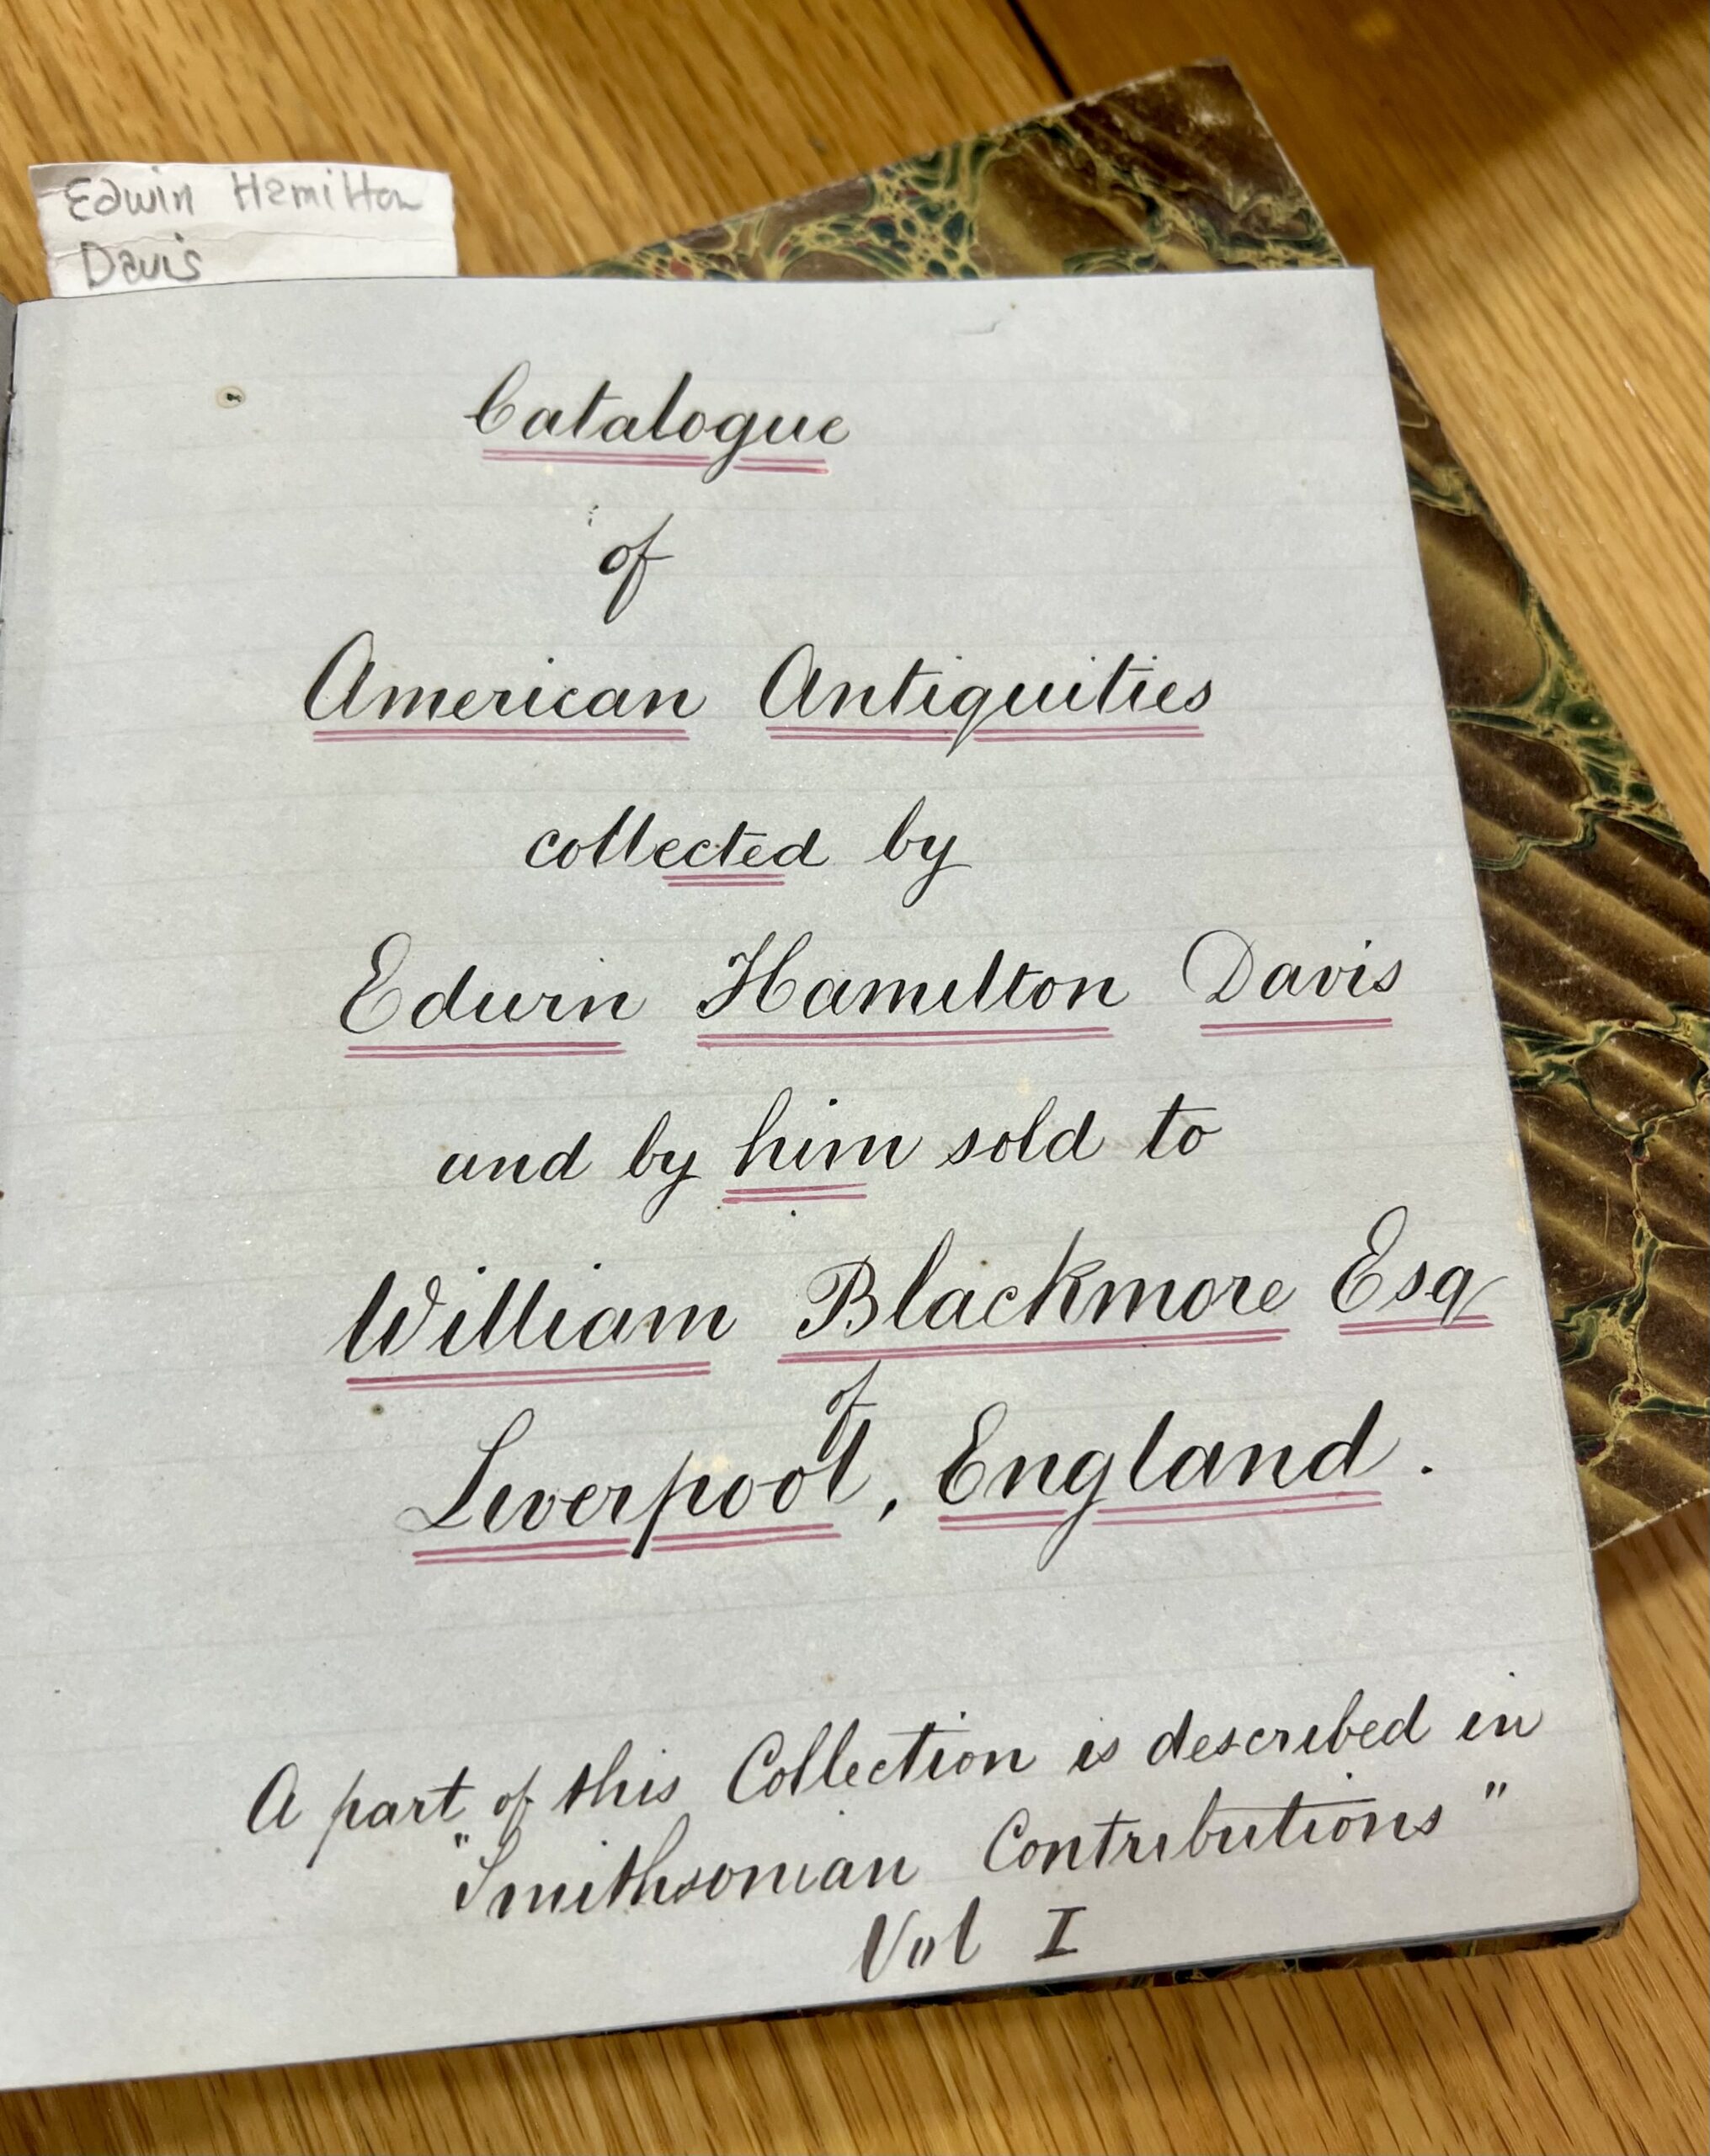 Edwin Hamilton
Davis
Catalogue
of
American Antiquities
collected by
Edwin Hamilton Davis
and by him sold to
William Blackmore Esq
of
Liverpool, England.
A part of this Collection is described in
"Smithsonian Contributions"
Vol I